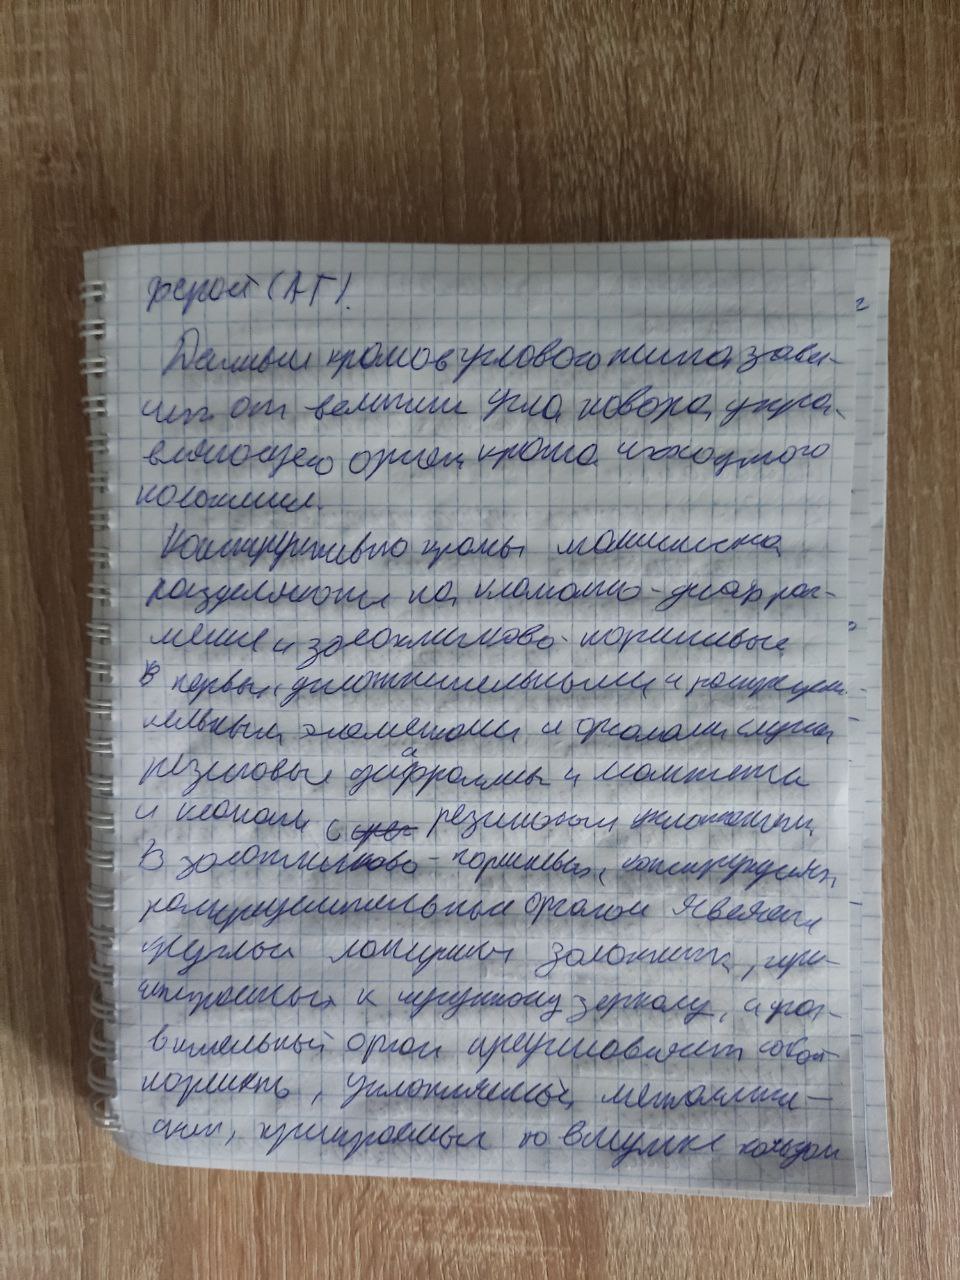 ферой (АТ).
Данный кранов углового типа зави-
сит от величин угла повора, упра-
вляющего орган крана исходного
положения.
Конструктивно краны машиниста
разделяются на клапанно-диафраг-
менные и золотниково-поршневые
В первых, уплотнительными и распредели-
тельными элементами и органами служа
резиновые диафрагмы и манжета
и клапаны с резиновым уплотнением
В золотниково-поршневых, конструкциях,
распределительным органом является
круглый латунный золотник, при-
тертый к чугунному зеркалу, а урав-
нительный орган представляет собой
поршень, уплотняемый металличе-
ским, притертым по втулке кольцом